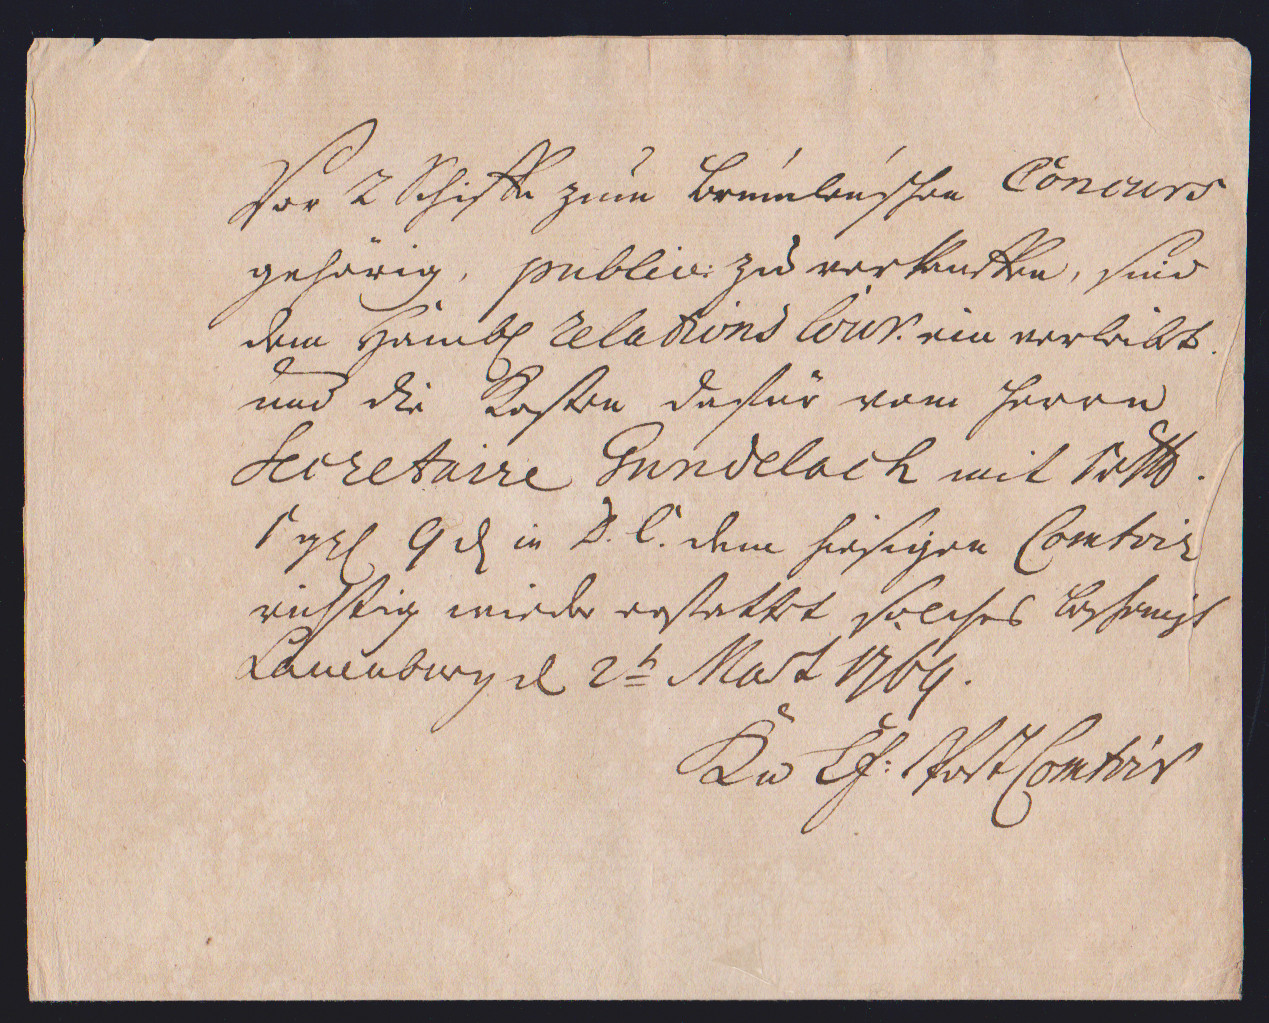 Vor 2 Schiffe zum Brümleuschen Concurs
gehörig, public: zu verkauffen, sind
dem Hamb. relations Cour. ein verleibt
und die Kosten dafür vom Herrn
Secretaire Gundelach mit
9 d in D. C. dem hiesigen Comtoir
richtig wieder erstattet solches bescheinigt
Lauenburg d 2t Mart 1769.
Kö Post Comtoir